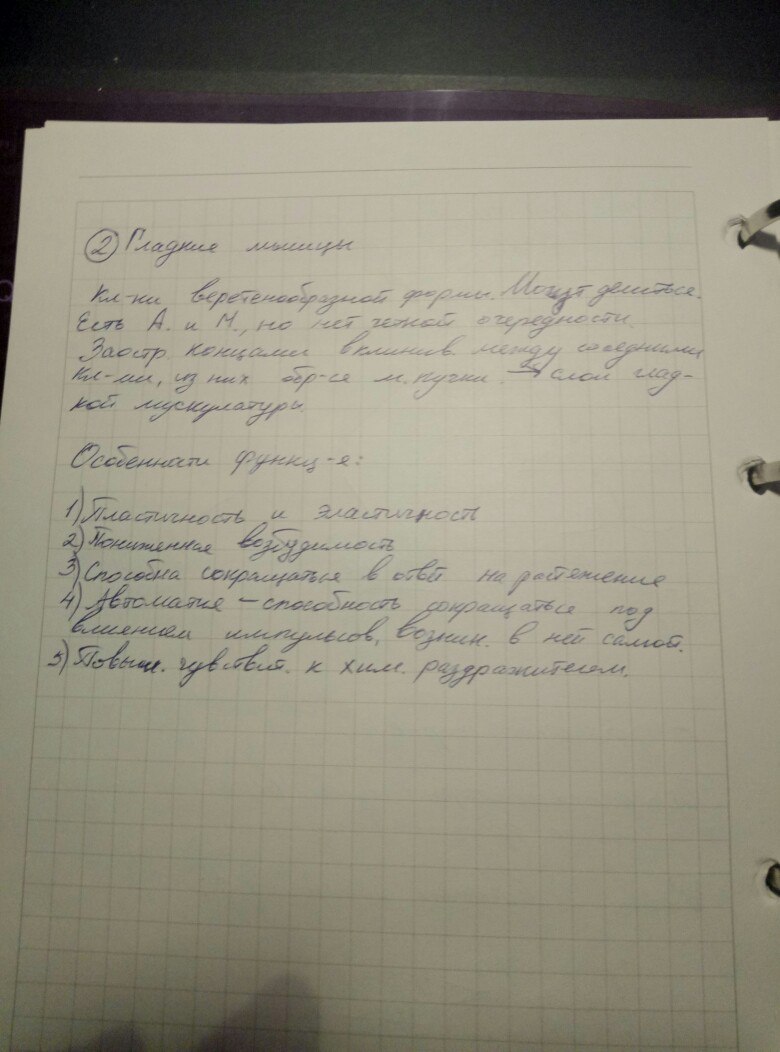 ② Гладкие мышцы
Кл-ки веретенообразной формы. Могут делиться.
Есть А. и М., но нет четкой очередности.
Заостр. концами вклинив. между соседними
кл-ми, из них обр-ся м. пучки. → слои глад-
кой мускулатуры.
Особенности функц-я:
1) Пластичность и эластичность
2) Пониженная возбудимость
3) Способна сокращаться в ответ на растяжение
4) Автоматия – способность сокращаться под
влиянием импульсов, возник. в ней самой.
5) Повыш. чувствит. к хим. раздражителям.